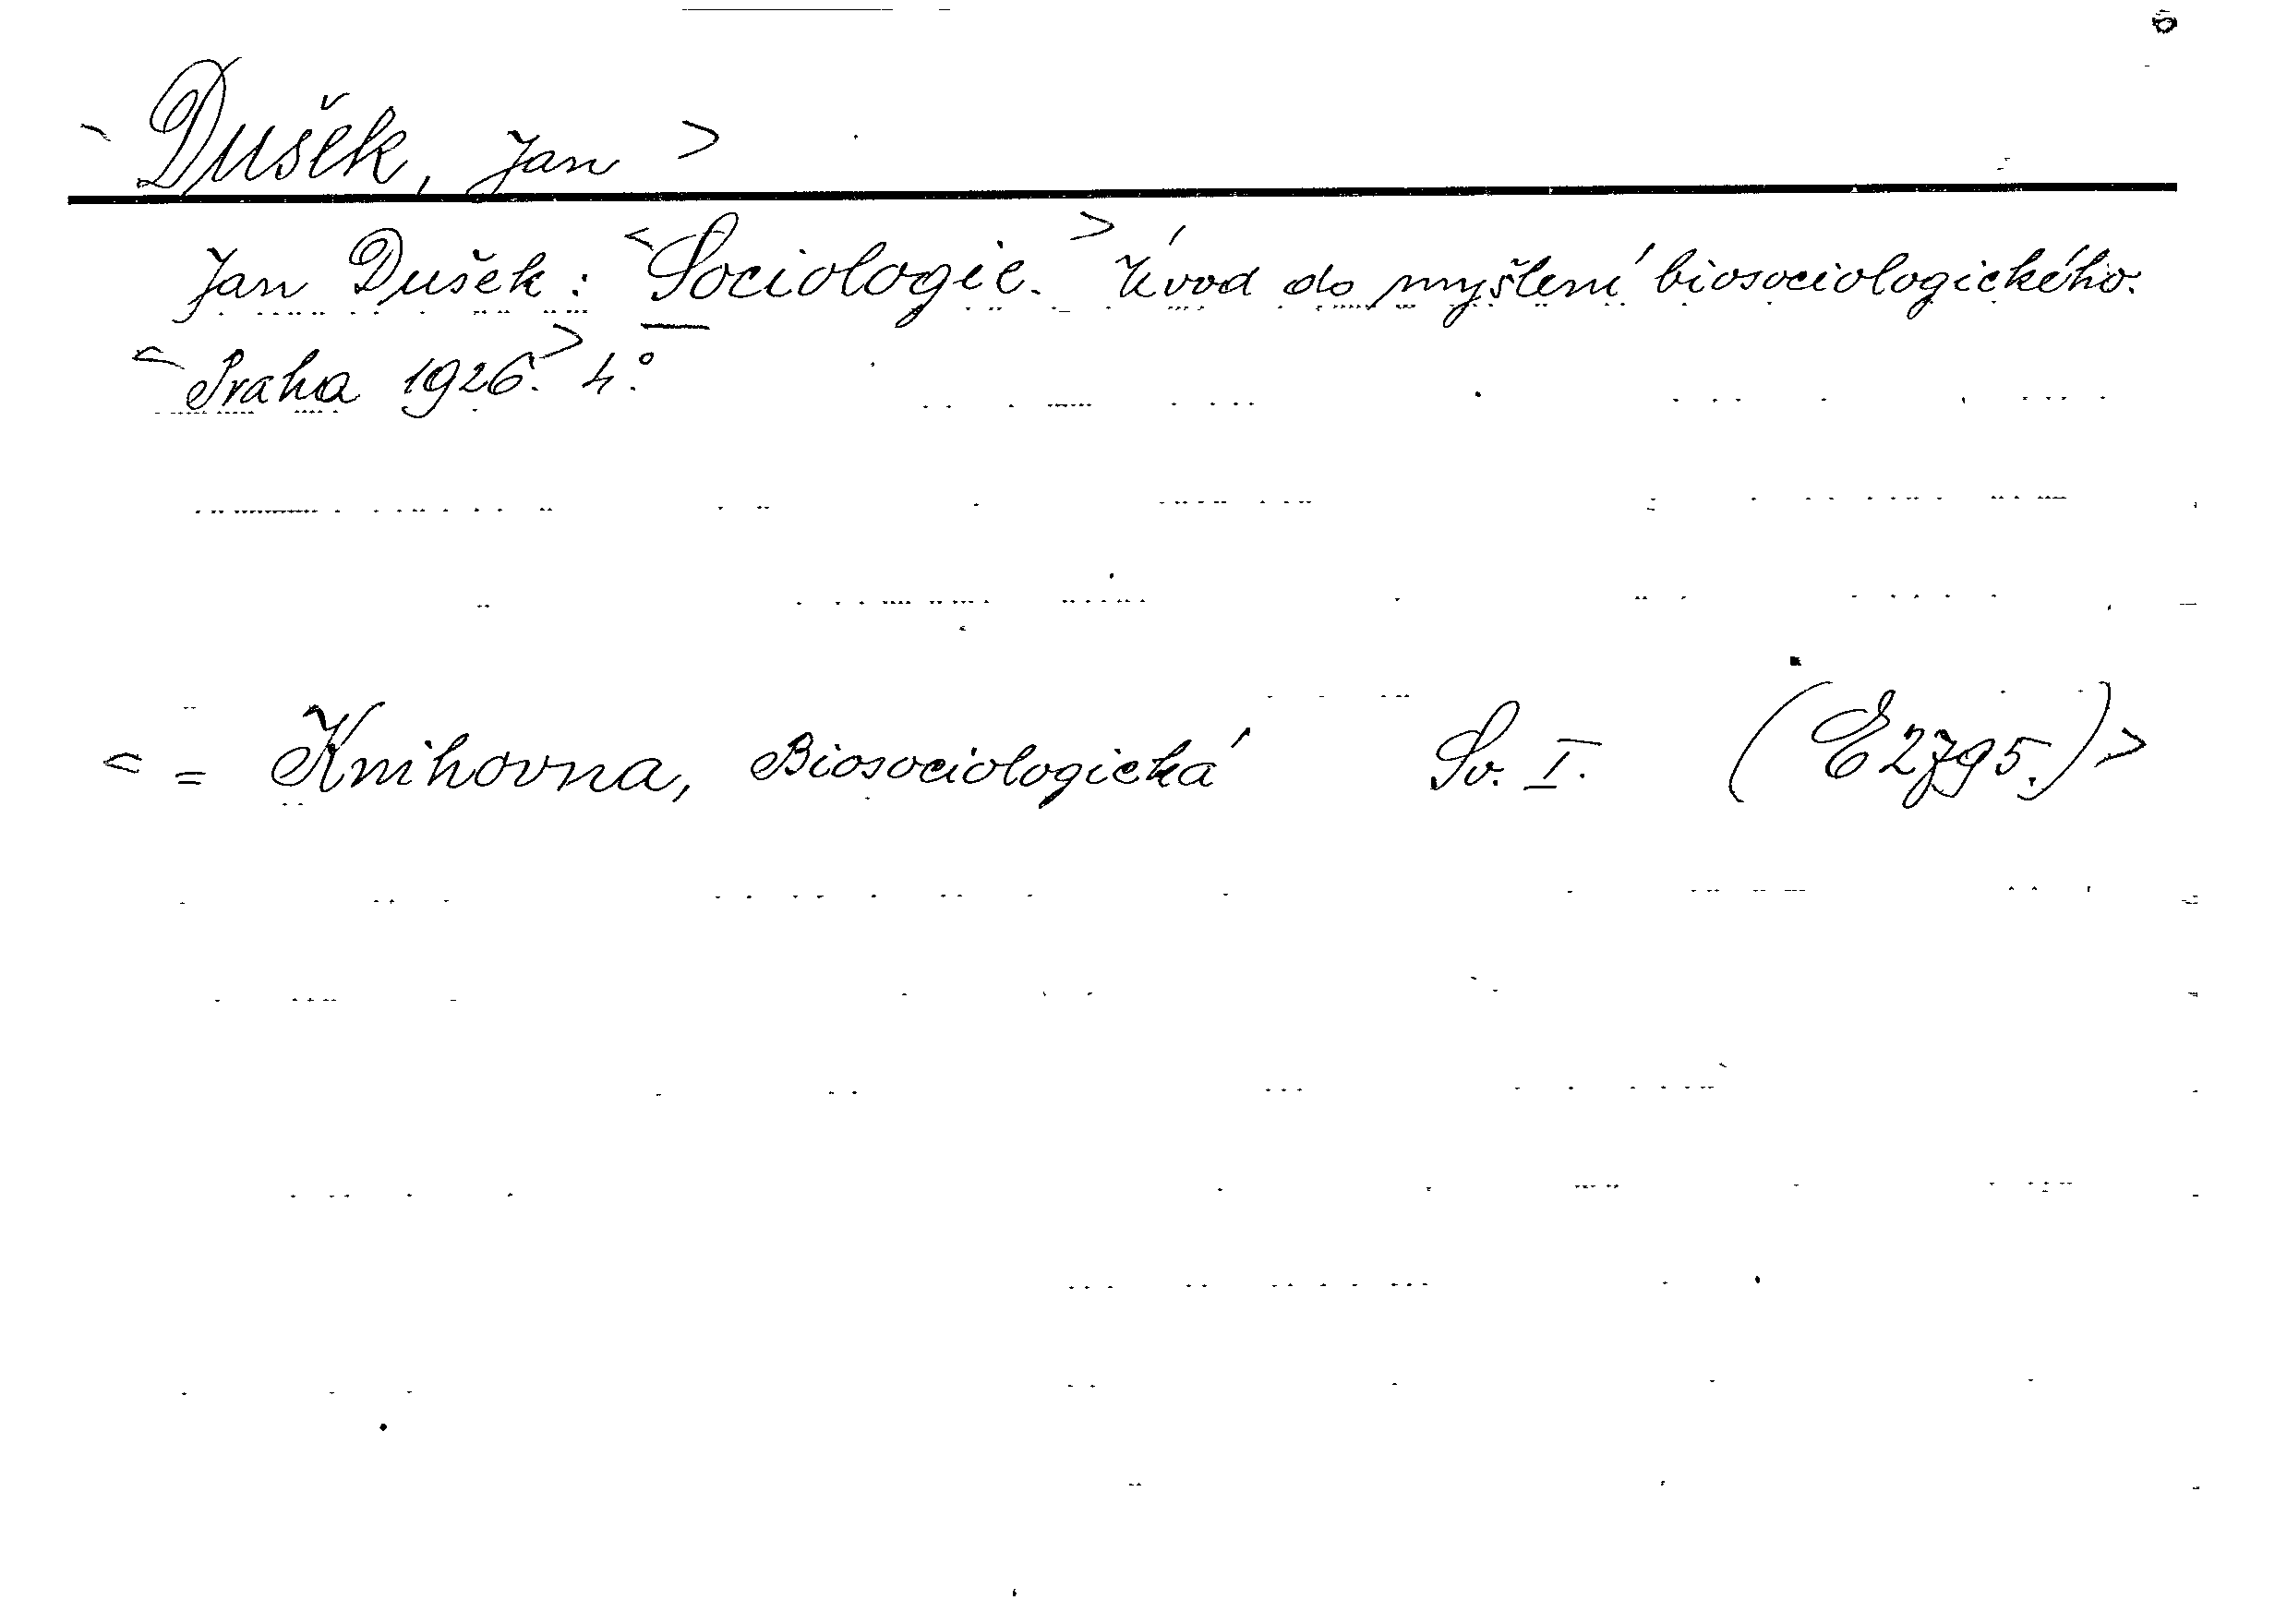 < Dušek, Jan >
Jan Dušek: <Sociologie.> Úvod do myšlení biosociologického.
<Praha 1926.> 4°.
< = Knihovna, Biosociologická Sv. I. (E2795.)>